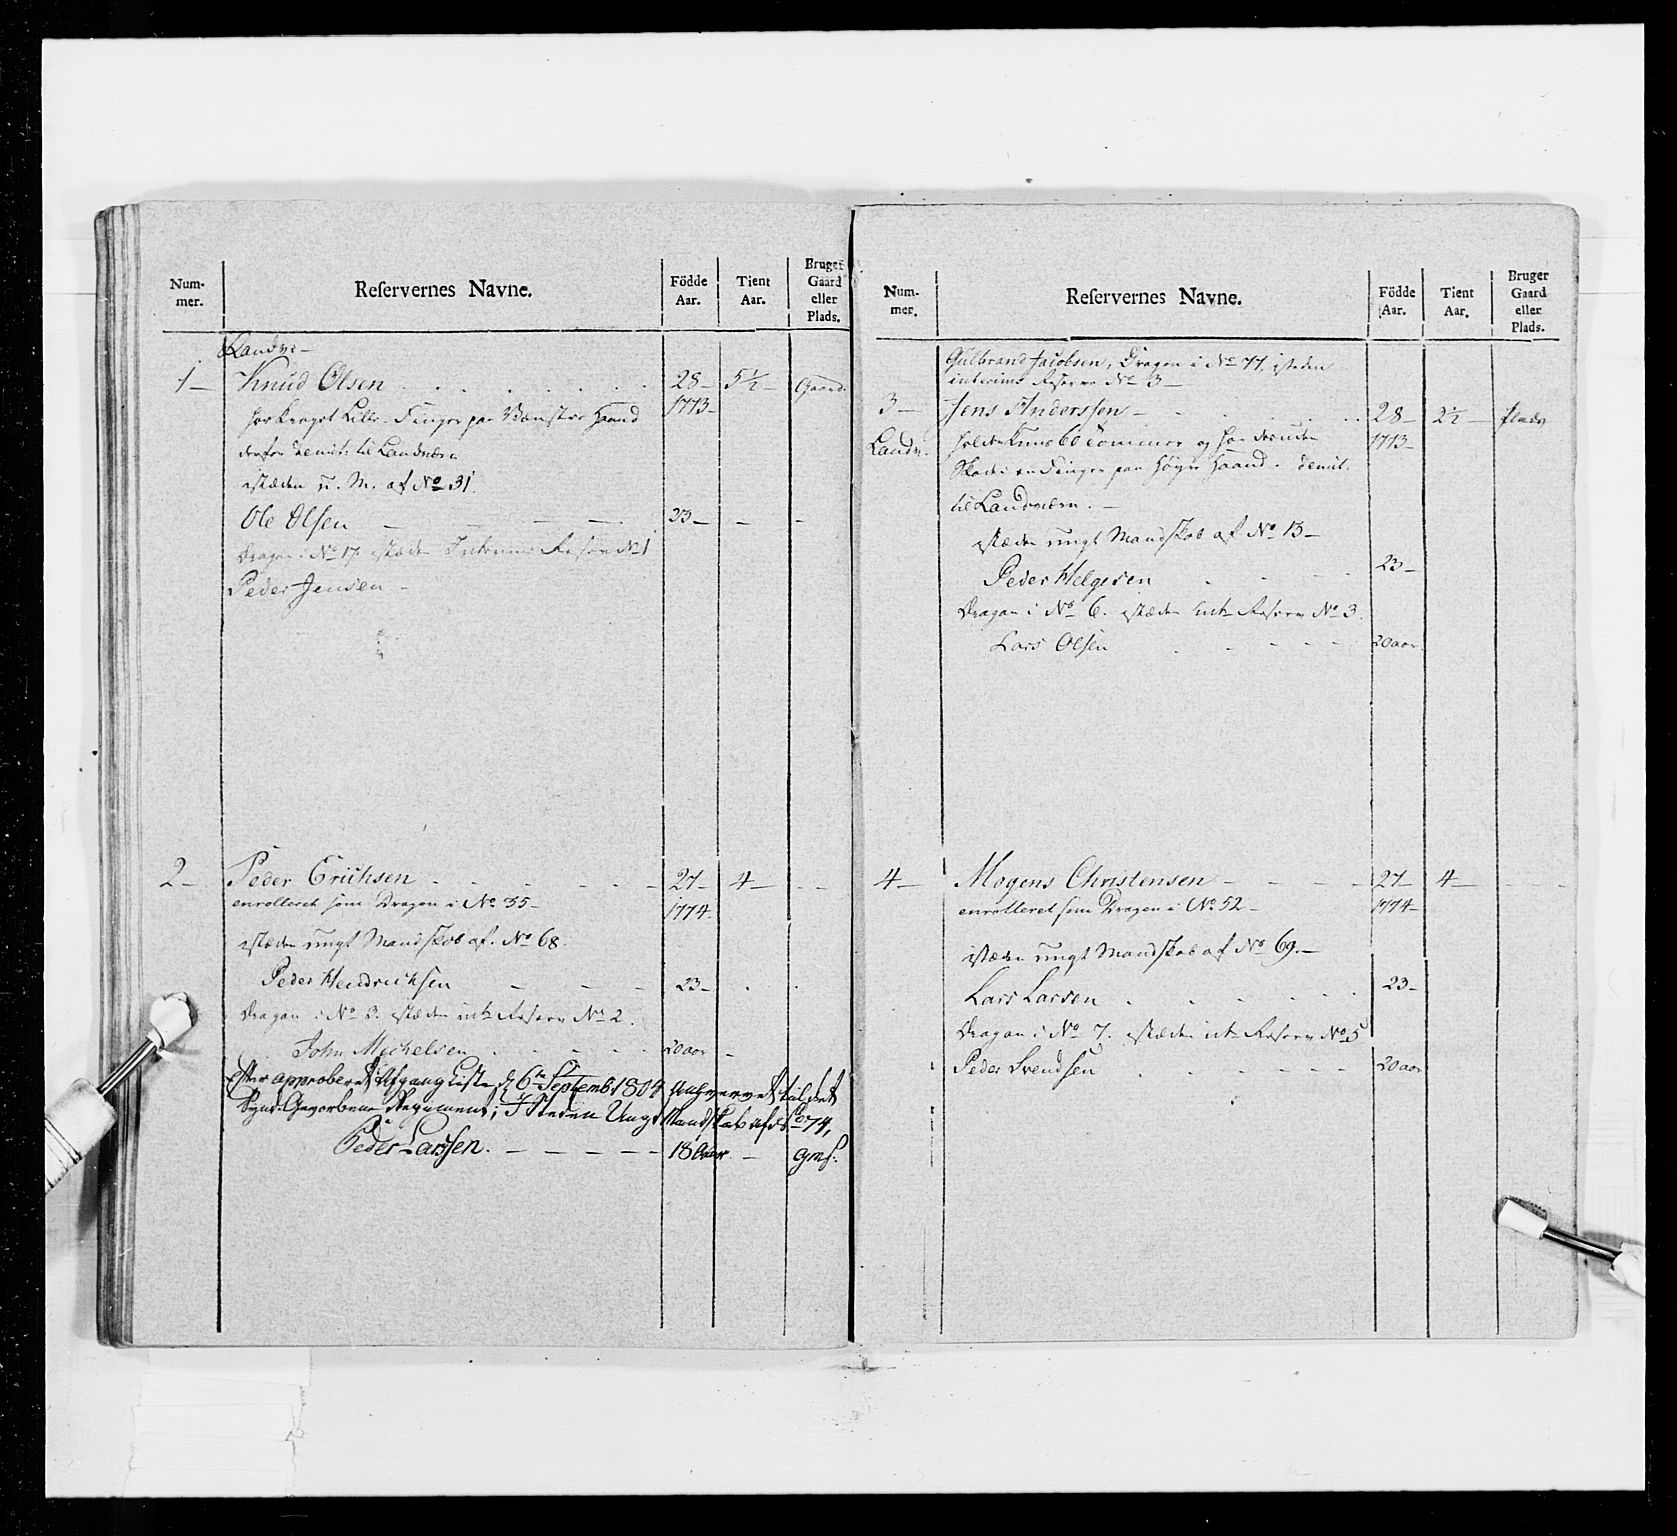 Num-
mer.
Reservernes Navne.
Födde
Aar.
Tient
Aar.
Bruger
Gaard
eller
Plads.
Landv:
1 — Knud Olsen . . . . . . . 28 — 5½ — Gaard.
har knaget Lille-Finger paa Venstre Haand 1773 —
derfor demit: til Landværn
istæden u. M. af No 31.
Ole Olsen — — — — 23 — — —
Dragon i No 17 istæden Interims Reserv No 1
Peder Jensen —
2 — Peder Erichsen . . . . . . — 27 — 4 — — —
enrolleret som Dragon i No 35 — 1774
istæden ungt Mandskab af No 68.
Peder Hendrichsen — — — 23 — . .
Dragon i No 3. istæden int. Reserv No 2.
John Michelsen . . . . . 20 aar —
efter approberet Afgang Liste d. 6te Septemb: 1804 til det
Gevorbene Regiment, i Steden Ungt Mandskab af No 74,
Peder Larssen. — — — — — 18 Aar — —
Num-
mer.
Reservernes Navne.
Födde
Aar.
Tient
Aar.
Bruger
Gaard
eller
Plads.
Gulbrand Jacobsen, Dragon i No 77, isteden
interims Reserve No 3 —
3 — Jens Anderssen — . . . . 28 — 2½ — Plads
Landv. holder kuns 60 Tommer og har desuden 1773 —
Skade i en Finger paa høyre Haand. demit.
til Landværn. —
istæden ungt Mandskab af No 13 —
Peder Helgesen . . . . 23 —
Dragon i No 6. istæden int. Reserv No 3.
Lars Olsen . . . — — 20 aar
4 — Mogens Christensen — — — — 27 — 4 — — —
enrolleret som Dragon i No 52 — 1774 —
istæden ungt Mandskab af No 69. —
Lars Larsen . . . . . . 23 —
Dragon i No 7. istæden int. Reserv No 5
Peder Svendsen . . . . . . 20 aar